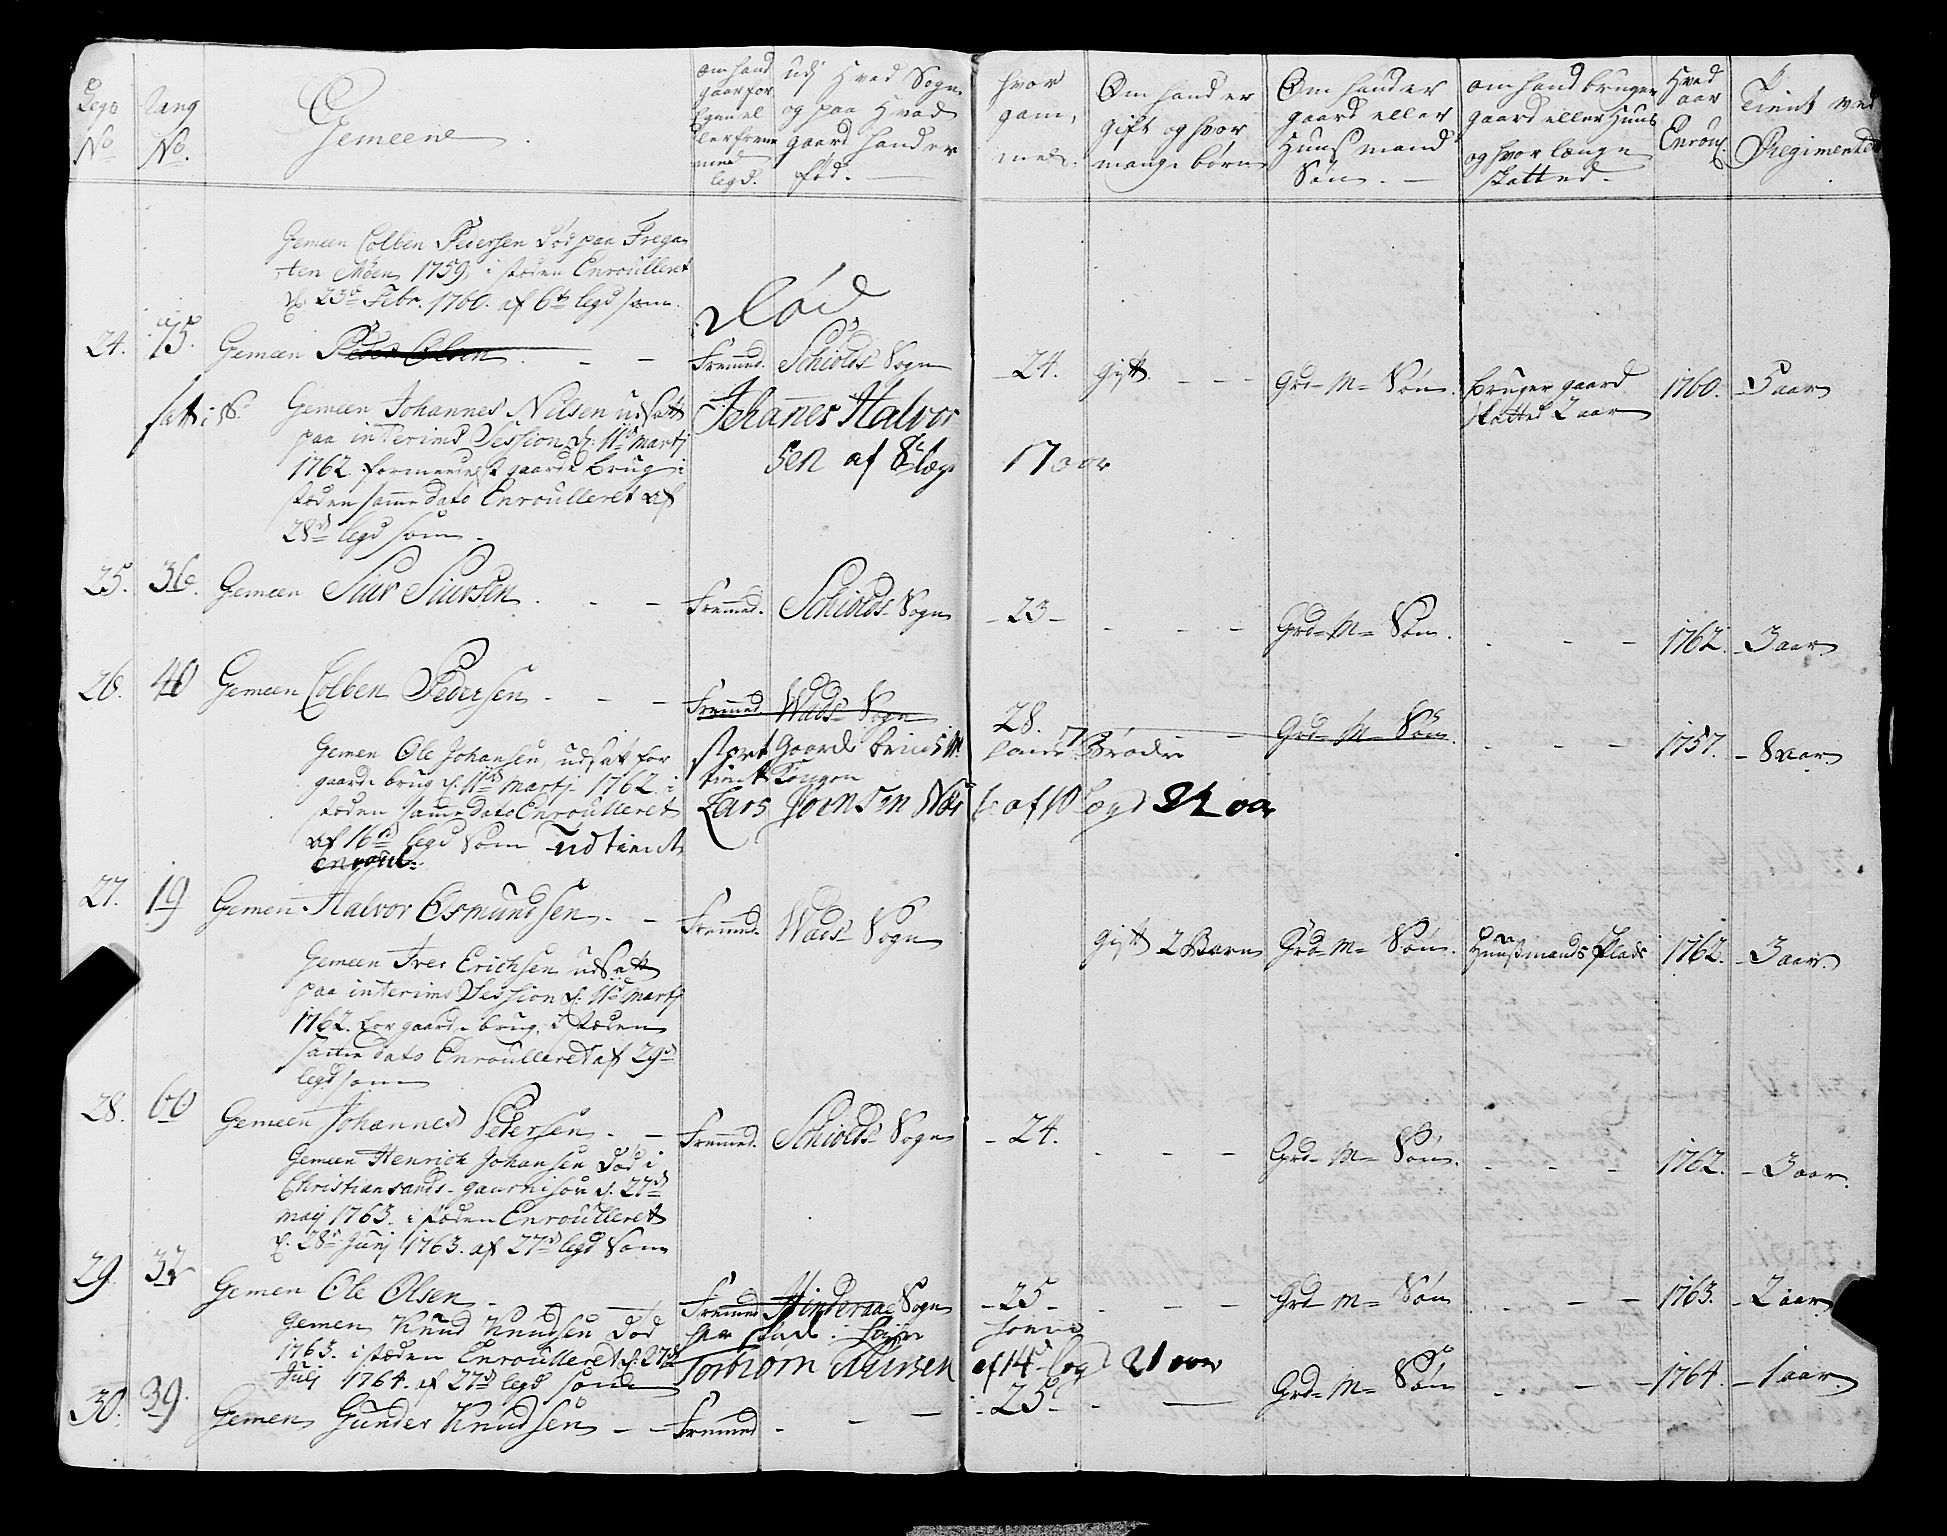 Legs No
Rang No.
Gemeene
om hand gaar for Egen el ler frem med legd.
udj Hved Sogn og paa Hvad gaard hand er fød.
hvor gam, mel.
Om hand er gift og hvor mange børn
Om hand er gaard eller Huus mand Søn.
om hand bruger gaard eller Huus og hvor længe skatted.
Hvad aar Enroull.
Tient ved Regimentet
Gemeen Colben Pedersen død paa Frega-
ten Møen 1759 i stæden Enroulleret
d. 23de Febr. 1760. af 6te legd som.
Død
24. 75. Gemeen Peder Olsen Fremmed. Schiolds Sogn 24. Gift. Grd M Søn bruger gaard skatted 2 aar 1760. 5 aar
sat i No
Gemeen Johannes Nilsen udsatt
paa interims Session d. 11te Martj
1762 formedelst gaards brug i
stæden samme dato Enroulleret af
28de legd som.
Johannes Halvor
sen af 8de læg 17 aar
25. 36. Gemeen Siur Siursen Fremmed. Schiolds Sogn 23 Grd M Søn. 1762. 3 aar
26. 40 Gemeen Colben Pedersen Fremmed. Wads Sogn 28. Grd M Søn. 1757. 8 aar.
Gemen Ole Johansen, udsat for
gaards brug d. 11te Martj 1762. i
stæden samme dato Enroulleret
af 16de legd som udtient
Enroul.
stort Gaards brug
tient Kongen
Lars Joensen af 10 Legd 21 aar
27. 19 Gemen Halvor Osmundsen Fremmd. Wads Sogn Gift 2 Børn Grd M Søn. Huusmands Plads 1762. 3 aar.
Gemeen Iver Erichsen udsatt
paa interims Session d. 11te Martj
1762. for gaards brug. i stæden
samme dato Enroulleret af 29de
legd som
28. 60 Gemeen Johannes Petersen Fremmed. Schiolds Sogn 24. Grd M Søn. 1762. 3 aar.
Gemeen Henrich Johansen død i
Christiansands gaarnison d. 27de
Maij 1763. i stæden Enroulleret
d. 28de Junj 1763. af 27de legd som
29. 32 Gemen Ole Olsen Fremmed Hinderaae Sogn 25 Grd M Søn 1763. 2 aar
Gemen Knud Knudsen død
1763. i stæden Enroulleret d. 27de
Julj 1764. af 27de legd som
Torbiørn Siursen af 14de Legd 21 aar
30. 39. Gemen Gunder Knudsen Fremmed 25 Grd M Søn 1764. 1 aar.